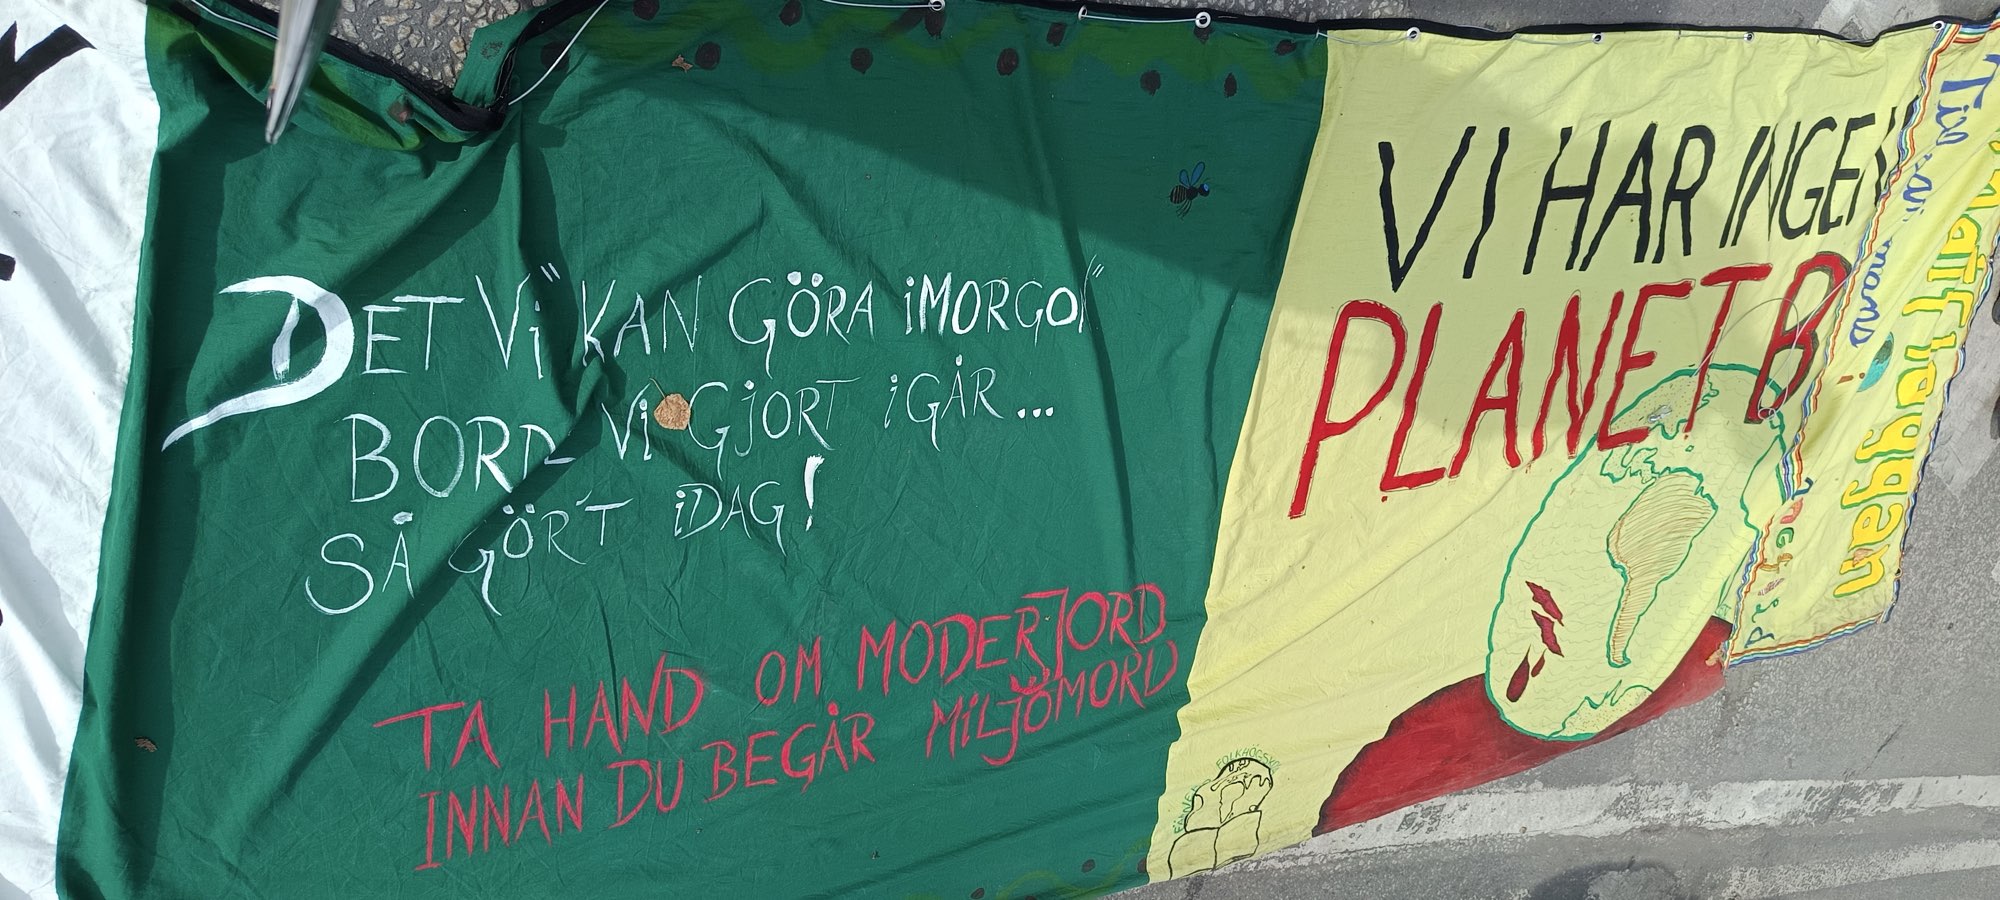 DET Vi" KAN GÖRA iMORGON"
BORD- Vi GJORT iGÅR...
SÅ GÖR'T iDAG!
TA HAND OM MODERJORD
INNAN DU BEGÅR MiLJÖMORD
VI HAR INGEN
PLANET B
FOLKHÖGSKOL